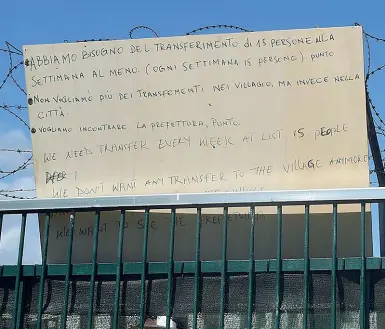 ABBIAMO BISUGNO DEL TRANSFERIMENTO di 15 PERSONE ALLA
SETTIMANA AL MENO (OGNI SETTIMANA 15 PERSONE) PUNTO
NON VOGLIAMO PIÙ DEI TRANSFEMENTI NEI VILLAGIO, MA INVECE NELLA
CITTÀ.
VOGLIAMO INCONTRARE LA PREFETTURA, PUNTO.
WE NEED TRANSFER EVERY WEEK AT LIST 15 PEOPLE
!
WE DON'T WANT ANY TRANSFER TO THE VILLAGE ANYMORE
WE WANT TO SEE THE PREFETTURA